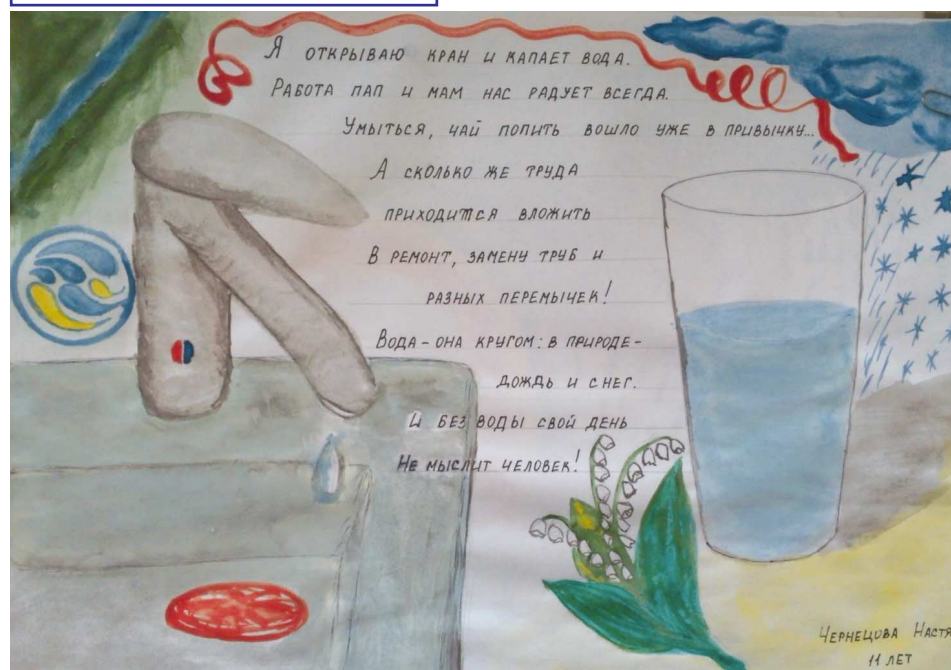 Я ОТКРЫВАЮ КРАН И КАПАЕТ ВОДА.
РАБОТА ПАП И МАМ НАС РАДУЕТ ВСЕГДА.
УМЫТЬСЯ, ЧАЙ ПОПИТЬ ВОШЛО УЖЕ В ПРИВЫЧКУ...
А СКОЛЬКО ЖЕ ТРУДА
ПРИХОДИТСЯ ВЛОЖИТЬ
В РЕМОНТ, ЗАМЕНУ ТРУБ И
РАЗНЫХ ПЕРЕМЫЧЕК!
ВОДА - ОНА КРУГОМ: В ПРИРОДЕ -
ДОЖДЬ И СНЕГ.
И БЕЗ ВОДЫ СВОЙ ДЕНЬ
НЕ МЫСЛИТ ЧЕЛОВЕК!
ЧЕРНЕЦОВА НАСТЯ
11 ЛЕТ